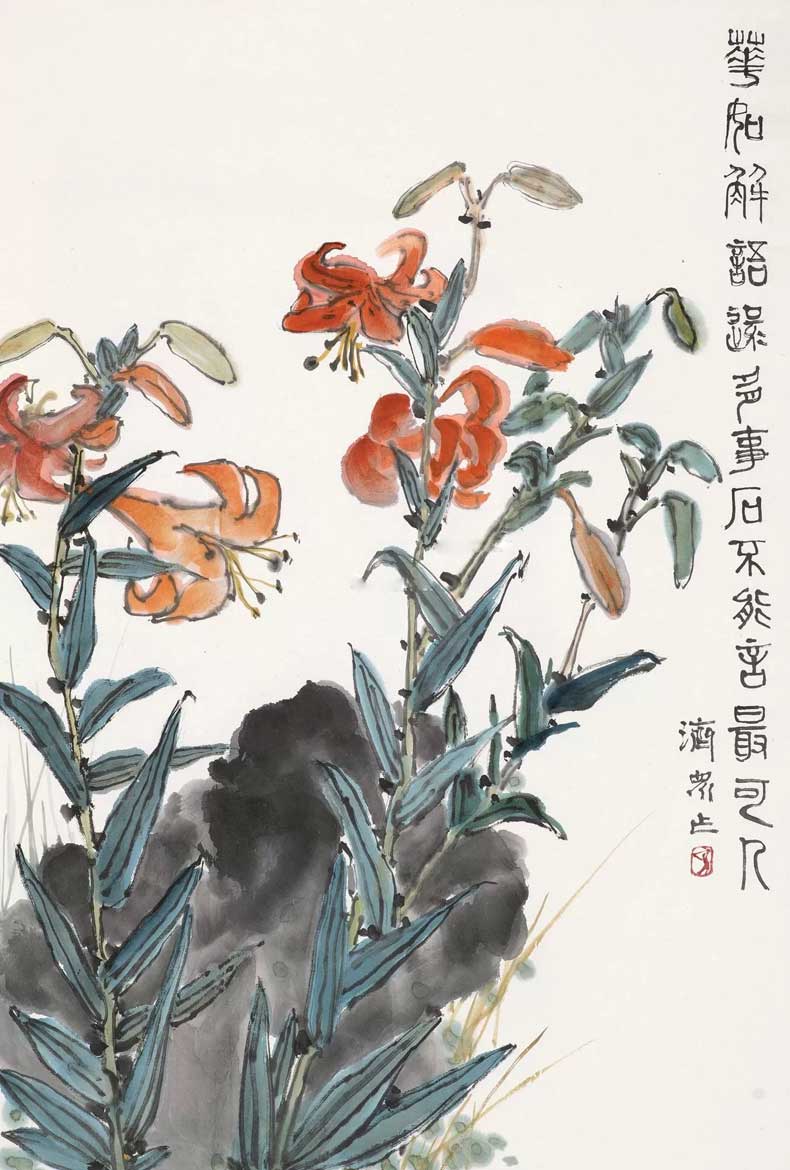 華如解語還多事石不能言最可人
濟眾